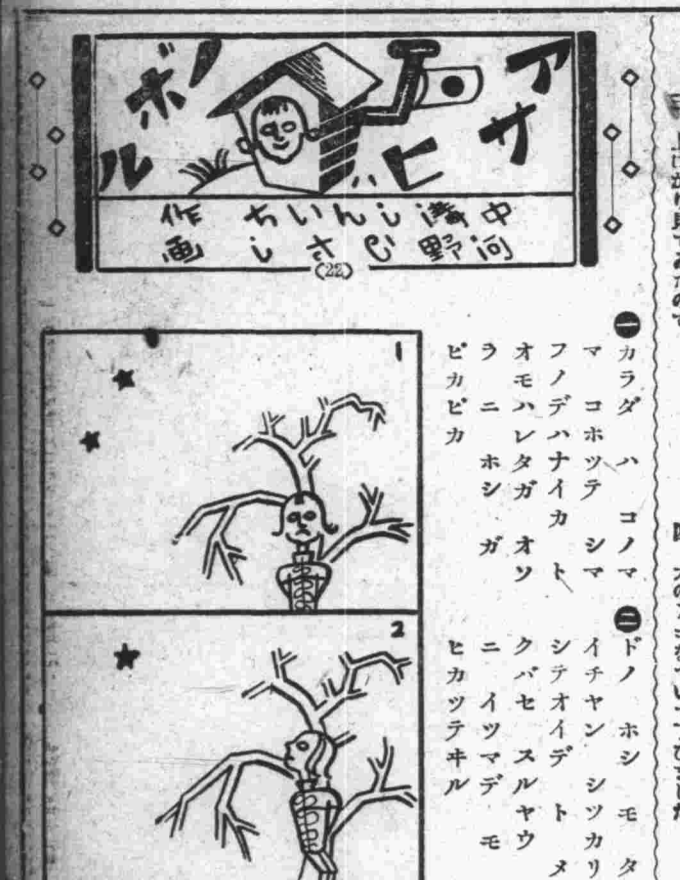 アサヒ
ノボル
中溝しんいち作
河野ひさし画
(22)
一 カラダ ハ コノマ
マ コホツテ シマ
フノデハナイカ ト
オモハレタガ オソ
ラ ニ ホシ ガ
ピカピカ
二 ドノ ホシ モ タ
イチヤン シツカリ
シテオイデ ト メ
クバセ スルヤウ
ニ イツマデ モ
ヒカツテヰル
1
2